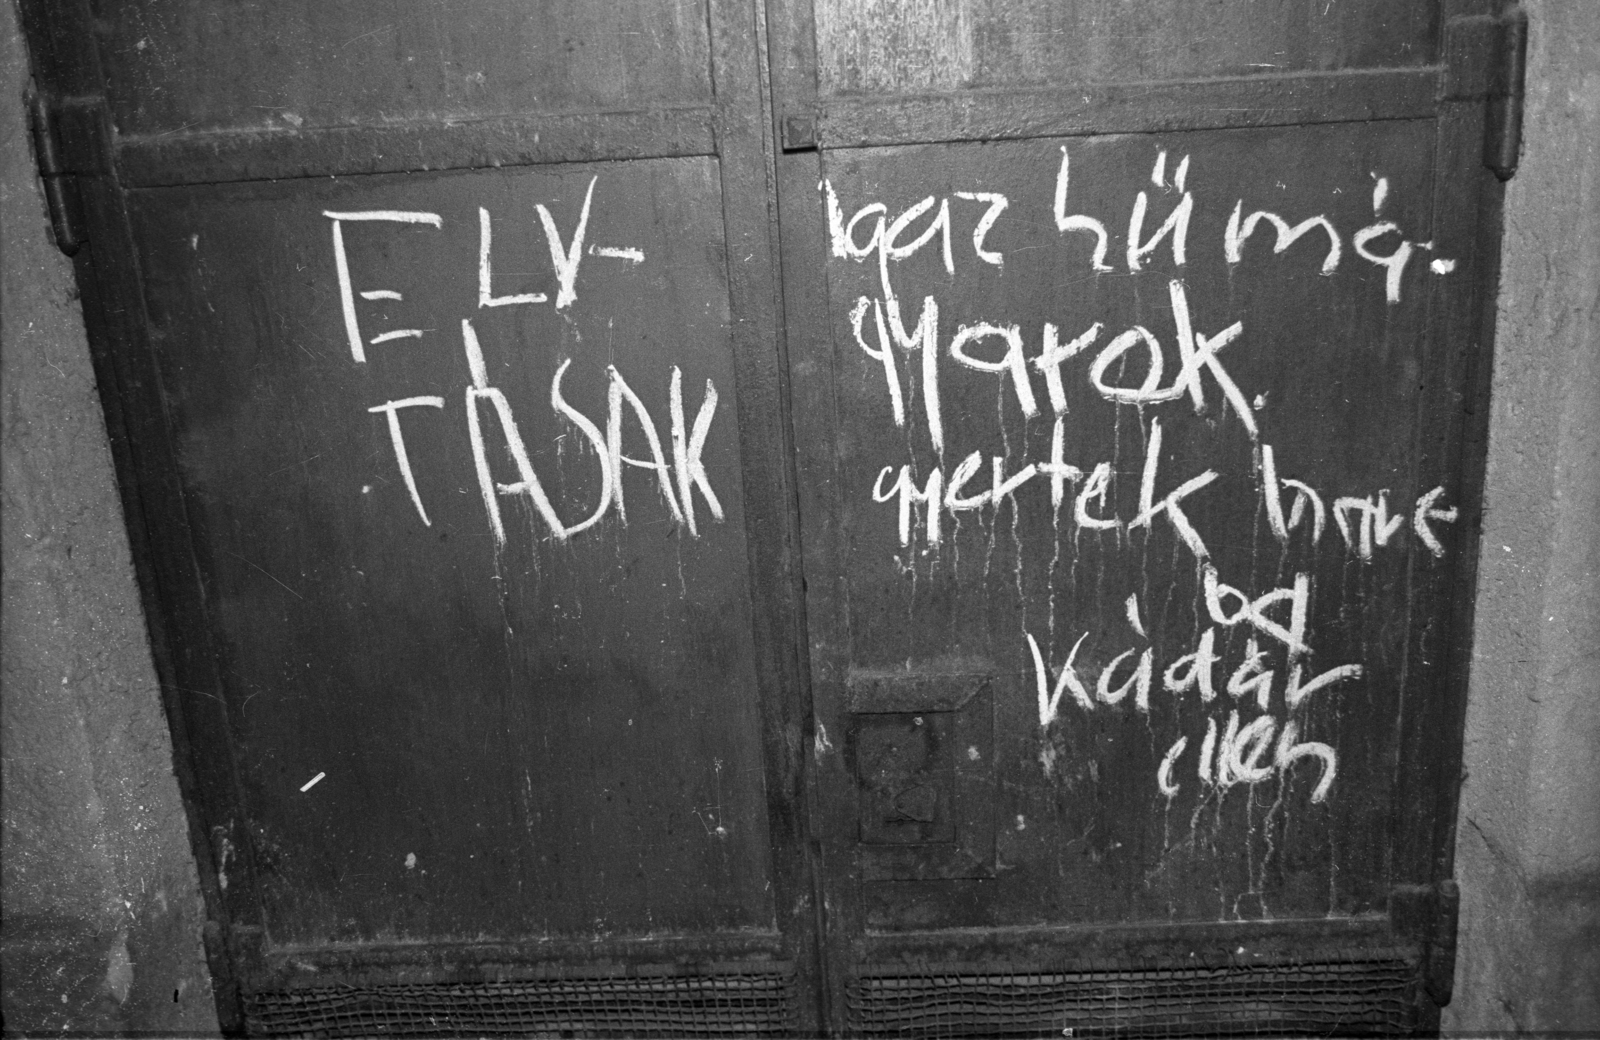 ELV-
TÁSAK
Igaz hű má-
gyarok
gyertek harc
ba
Kádár
ellen